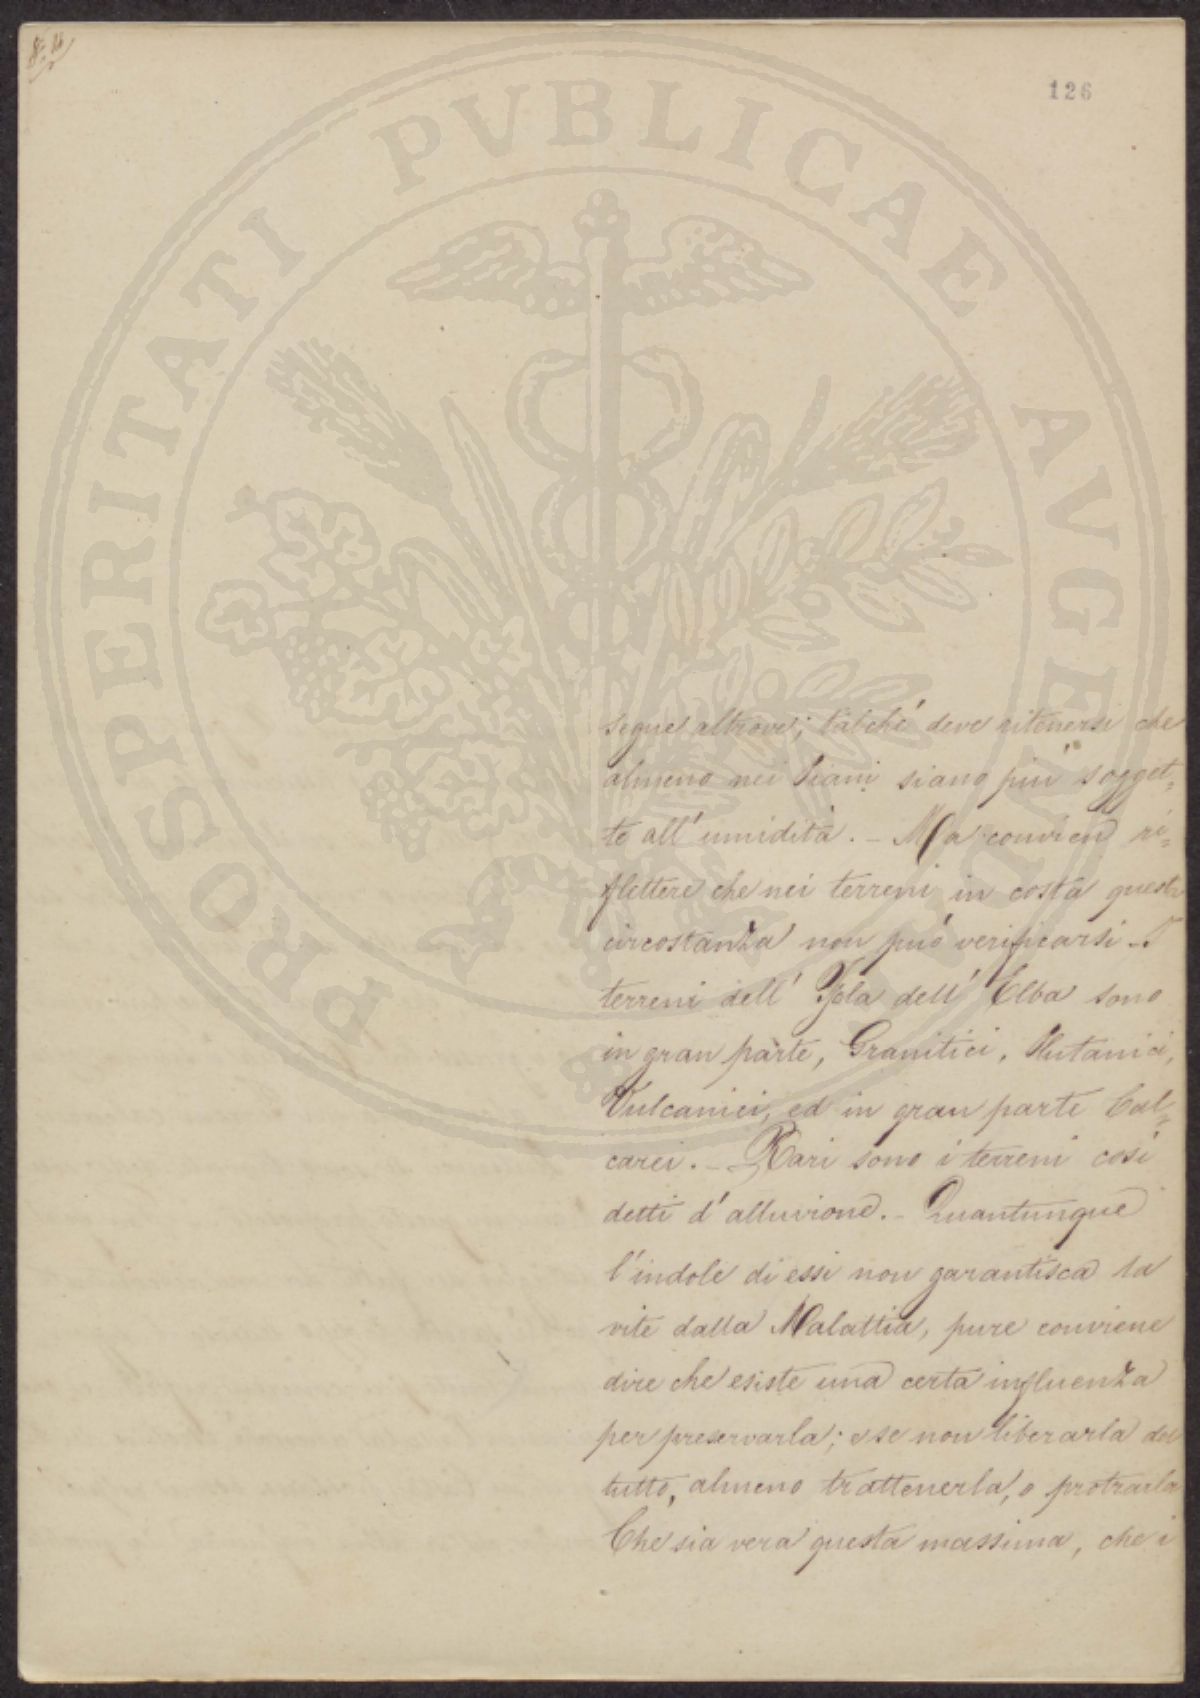 126
PROSPERITATI PUBLICAE AVGENDAE
segue altrove; talché deve ritenersi che
almeno nei Piani siano più sogget=
te all' umidità. _ Ma convien ri=
flettere che nei terreni in costa questa
circostanza non può verificarsi _ I
terreni dell' Isola dell' Elba sono
in gran parte, Granitici, Plutanici,
Vulcanici, ed in gran parte Cal=
carei. _ Rari sono i terreni così
detti d' alluvione. _ Quantunque
l'indole di essi non garantisca la
vite dalla Malattia, pure conviene
dire che esiste una certa influenza
per preservarla; e se non liberarla del
tutto, almeno trattenerla, o protrarla
Che sia vera questa massima, che i